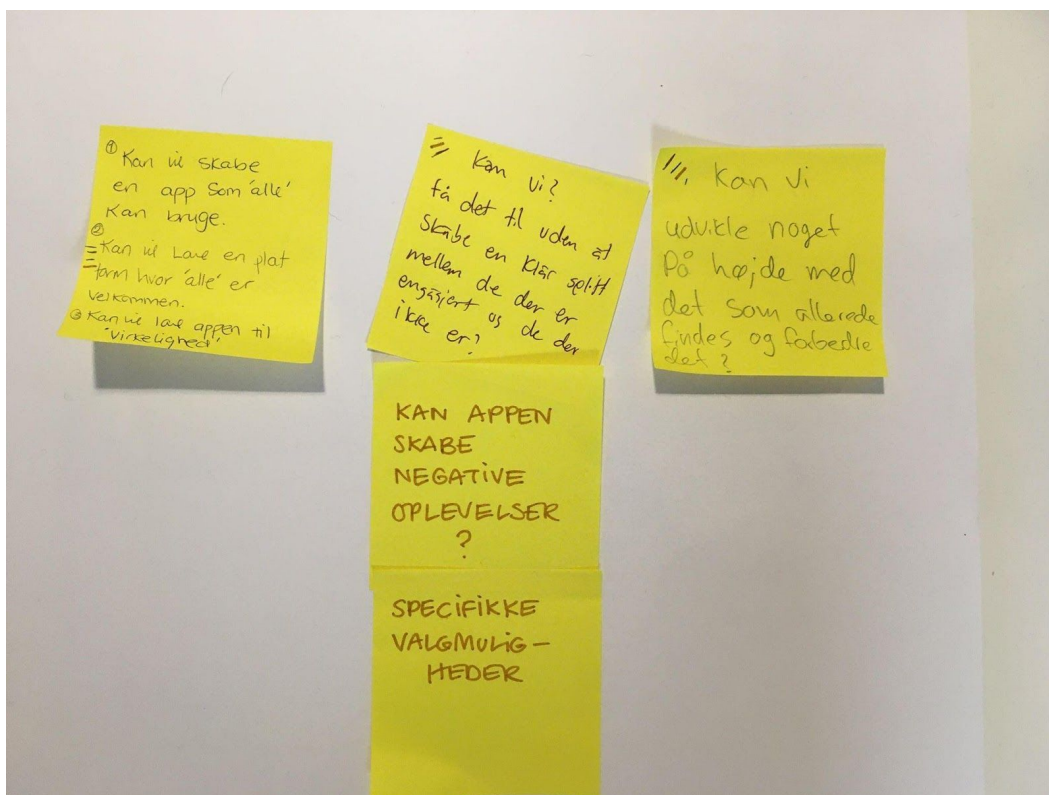 ① Kan vi skabe
en app som 'alle'
kan bruge.
②
Kan vi Lave en plat
form hvor 'alle' er
velkommen.
③ Kan vi lave appen til
'virkelighed'
Kan vi?
få det til uden at
skabe en klar splitt
mellem de der er
engasjert og de der
ikke er?
KAN APPEN
SKABE
NEGATIVE
OPLEVELSER
?
SPECIFIKKE
VALGMULIG-
HEDER
Kan Vi
udvikle noget
På højde med
det som allerede
findes og forbedre
det?